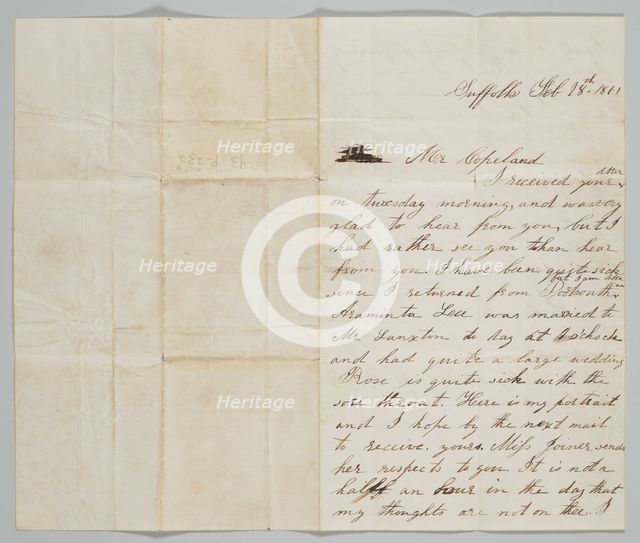 Suffolk Feb 18th 1861
Mr Copeland
I received your letter
on tuesday morning, and was very
glad to hear from you, but I
had rather see you than hear
from you. I have been quite sick
but I am better
since I returned from Portsouth
Araminta Lee was married to
Mr Lanxton to day at o'clock
and had quite a large wedding
Rose is quite sick with the
sore throat. Here is my portrait
and I hope by the next mail
to receive. yours. Miss Joiner sends
her respects to you. It is not a
half an hour in the day that
my thoughts are not on thee. I
Heritage
Heritage
Heritage
Heritage
Heritage
Heritage
©